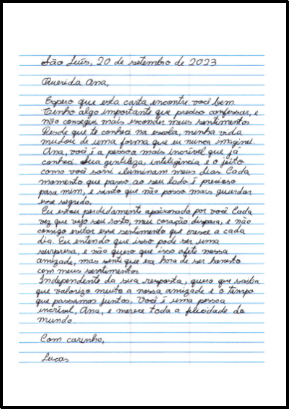 São Luís, 20 de setembro de 2023
Querida Ana,
Espero que esta carta encontre você bem.
Tenho algo importante que preciso confessar, e
não consigo mais esconder meus sentimentos.
Desde que te conheci na escola, minha vida
mudou de uma forma que eu nunca imaginei.
Ana, você é a pessoa mais incrível que já
conheci. Sua gentileza, inteligência e o jeito
como você sorri iluminam meus dias. Cada
momento que passo ao seu lado é precioso
para mim, e sinto que não posso mais guardar
esse segredo.
Eu estou perdidamente apaixonado por você. Cada
vez que vejo seu rosto, meu coração dispara, e não
consigo evitar esse sentimento que cresce a cada
dia. Eu entendo que isso pode ser uma
surpresa, e não quero que isso afete nossa
amizade, mas senti que era hora de ser honesto
com meus sentimentos.
Independente da sua resposta, quero que saiba
que valorizo muito a nossa amizade e o tempo
que passamos juntos. Você é uma pessoa
incrível, Ana, e merece toda a felicidade do
mundo.
Com carinho,
Lucas